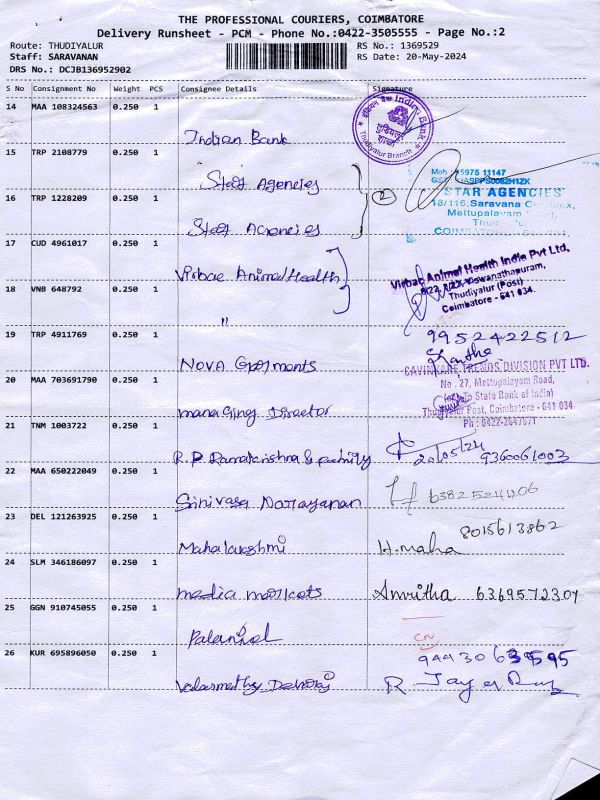 THE PROFESSIONAL COURIERS, COIMBATORE
Delivery Runsheet - PCM - Phone No.:0422-3505555 - Page No.:2
Route: THUDIYALUR RS No.: 1369529
Staff: SARAVANAN RS Date: 20-May-2024
DRS No.: DCJB136952902
S No Consignment No Weight PCS Consignee Details Signature
14 MAA 108324563 0.250 1
Indian Bank
Indian Bank
Thudiyalur Branch
15 TRP 2108779 0.250 1
Star Agencies
STAR AGENCIES
18/116, Saravana
Mettupalayam
16 TRP 1228209 0.250 1
2
17 CUD 4961017 0.250 1
Virbac Animal Health
Virbac Animal Health India Pvt Ltd.
Thudiyalur (Post)
Coimbatore - 641 034.
18 VNB 648792 0.250 1
"
19 TRP 4911769 0.250 1
9952422512
Nova Garments
CAVINKARE TRENDS DIVISION PVT LTD.
No : 27, Mettupalayam Road,
To State Bank of India)
20 MAA 703691790 0.250 1
managing Director
Post, Coimbatore - 641 034.
Ph : 0422-2647671
21 TNM 1003722 0.250 1
R.P Ramakrishna & family
20/05/24 9360061003
22 MAA 650222049 0.250 1
Srinivasa Narayanan
23 DEL 121263925 0.250 1
8015613862
Mahalakshmi H.maha
24 SLM 346186097 0.250 1
media markets Amritha 6369572304
25 GGN 910745055 0.250 1
CN
26 KUR 695896050 0.250 1
9443063595